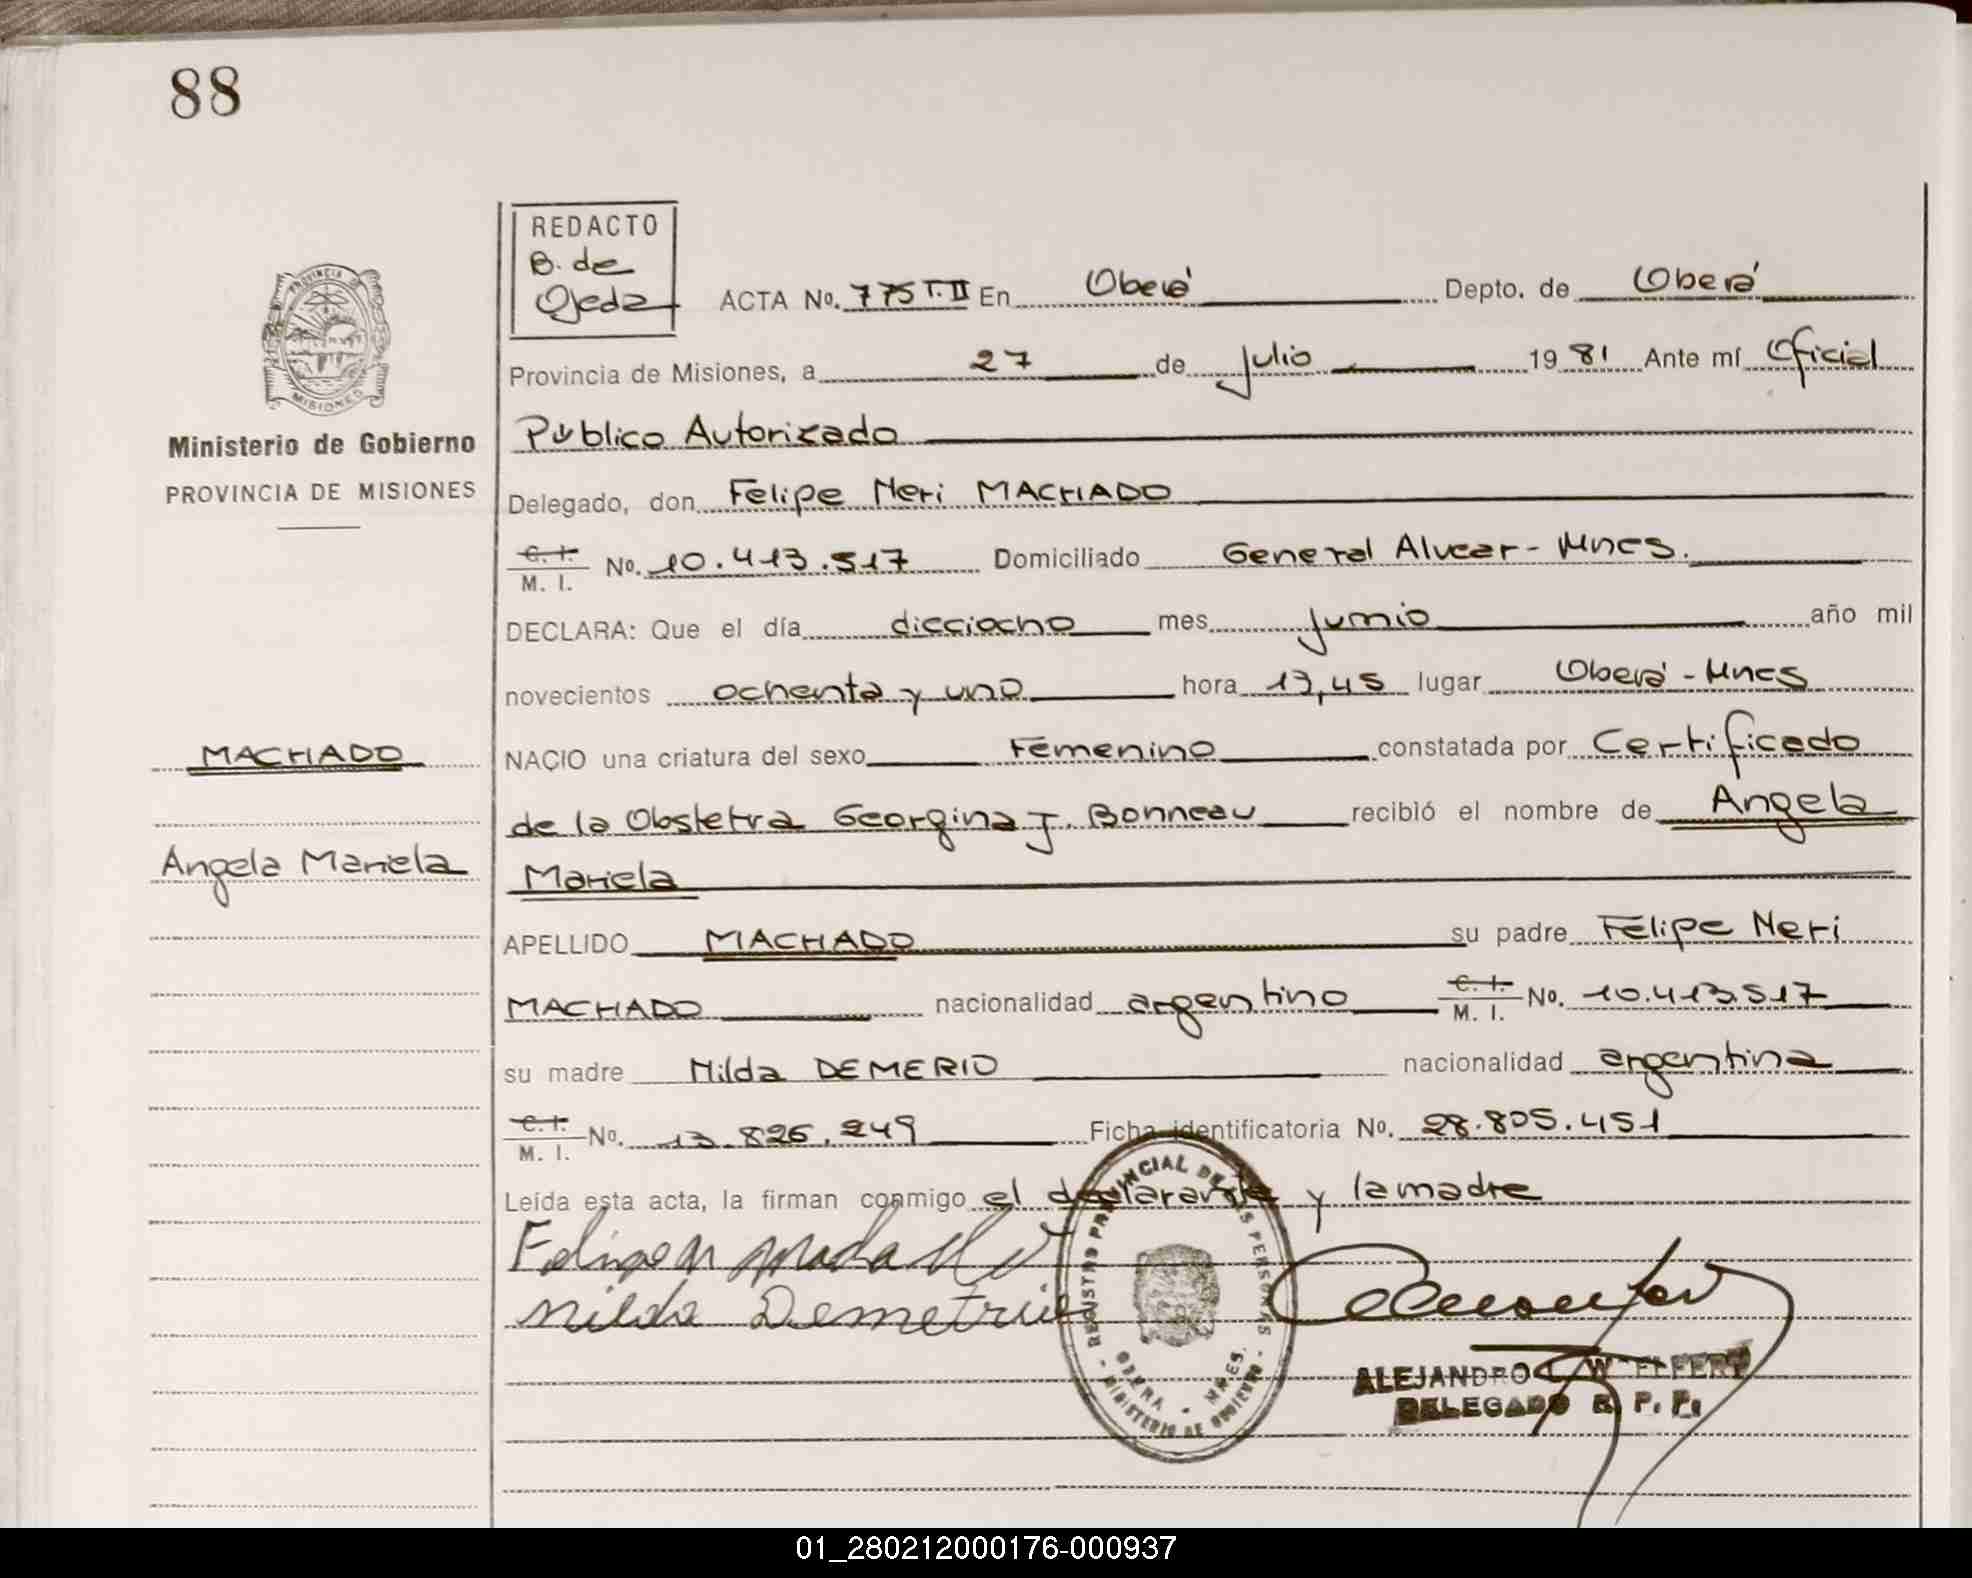 88
REDACTO
B. de
Ojeda
ACTA No. 775 T. II En Oberá Depto. de Oberá
Provincia de Misiones, a 27 de Julio 19 81 Ante mí Oficial
Público Autorizado
Delegado, don Felipe Neri MACHADO
C. I. M. I. No. 10.413.517 Domiciliado General Alvear - Mnes.
DECLARA: Que el día dieciocho mes junio año mil
novecientos ochenta y uno hora 17,45 lugar Oberá - Mnes
NACIO una criatura del sexo Femenino constatada por Certificado
de la Obstetra Georgina J. Bonneau recibió el nombre de Angela
Mariela
APELLIDO MACHADO su padre Felipe Neri
MACHADO nacionalidad argentino C. I. M. I. No. 10.413.517
su madre Nilda DEMERIO nacionalidad argentina
C. I. M. I. No. 13.826.249 Ficha identificatoria No. 28.805.451
Leída esta acta, la firman conmigo el declarante y la madre
Nilda Demetrio
PROVINCIA DE
MISIONES
Ministerio de Gobierno
PROVINCIA DE MISIONES
MACHADO
Angela Mariela
PROVINCIAL DE LAS PERSONAS
OBERA - MNES.
MINISTERIO DE GOBIERNO
ALEJANDRO
DELEGADO R. P. P.
01_280212000176-000937